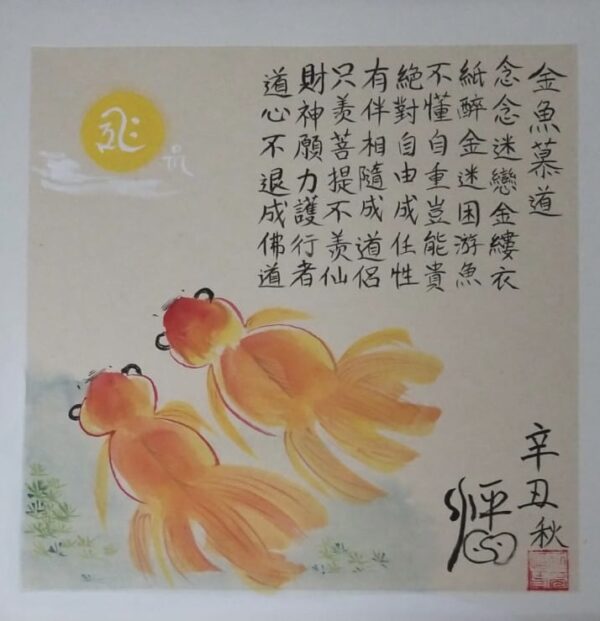 金魚慕道
念念迷戀金縷衣
紙醉金迷困游魚
不懂自重豈能貴
絕對自由成任性
有伴相隨成道侶
只羨菩提不羨仙
財神願力護行者
道心不退成佛道
辛丑秋